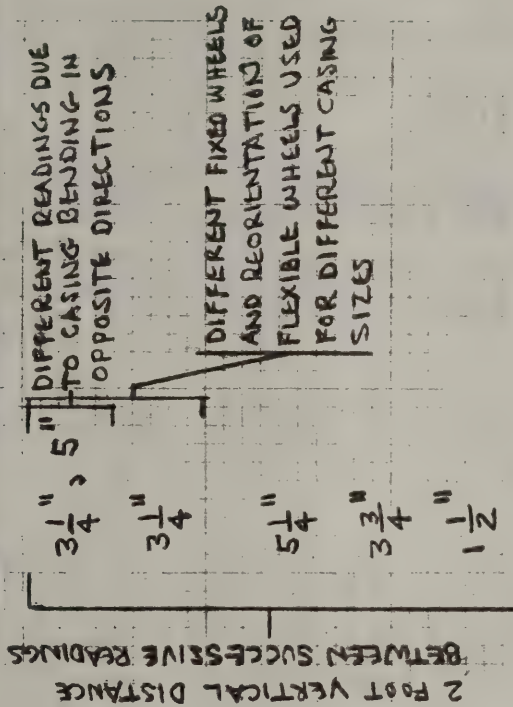 DIFFERENT READINGS DUE
TO CASING BENDING IN
OPPOSITE DIRECTIONS
3 1/4", 5"
3 1/4"
DIFFERENT FIXED WHEELS
AND REORIENTATION OF
FLEXIBLE WHEELS USED
FOR DIFFERENT CASING
SIZES
5 1/4"
3 3/4"
1 1/2"
2 FOOT VERTICAL DISTANCE
BETWEEN SUCCESSIVE READINGS